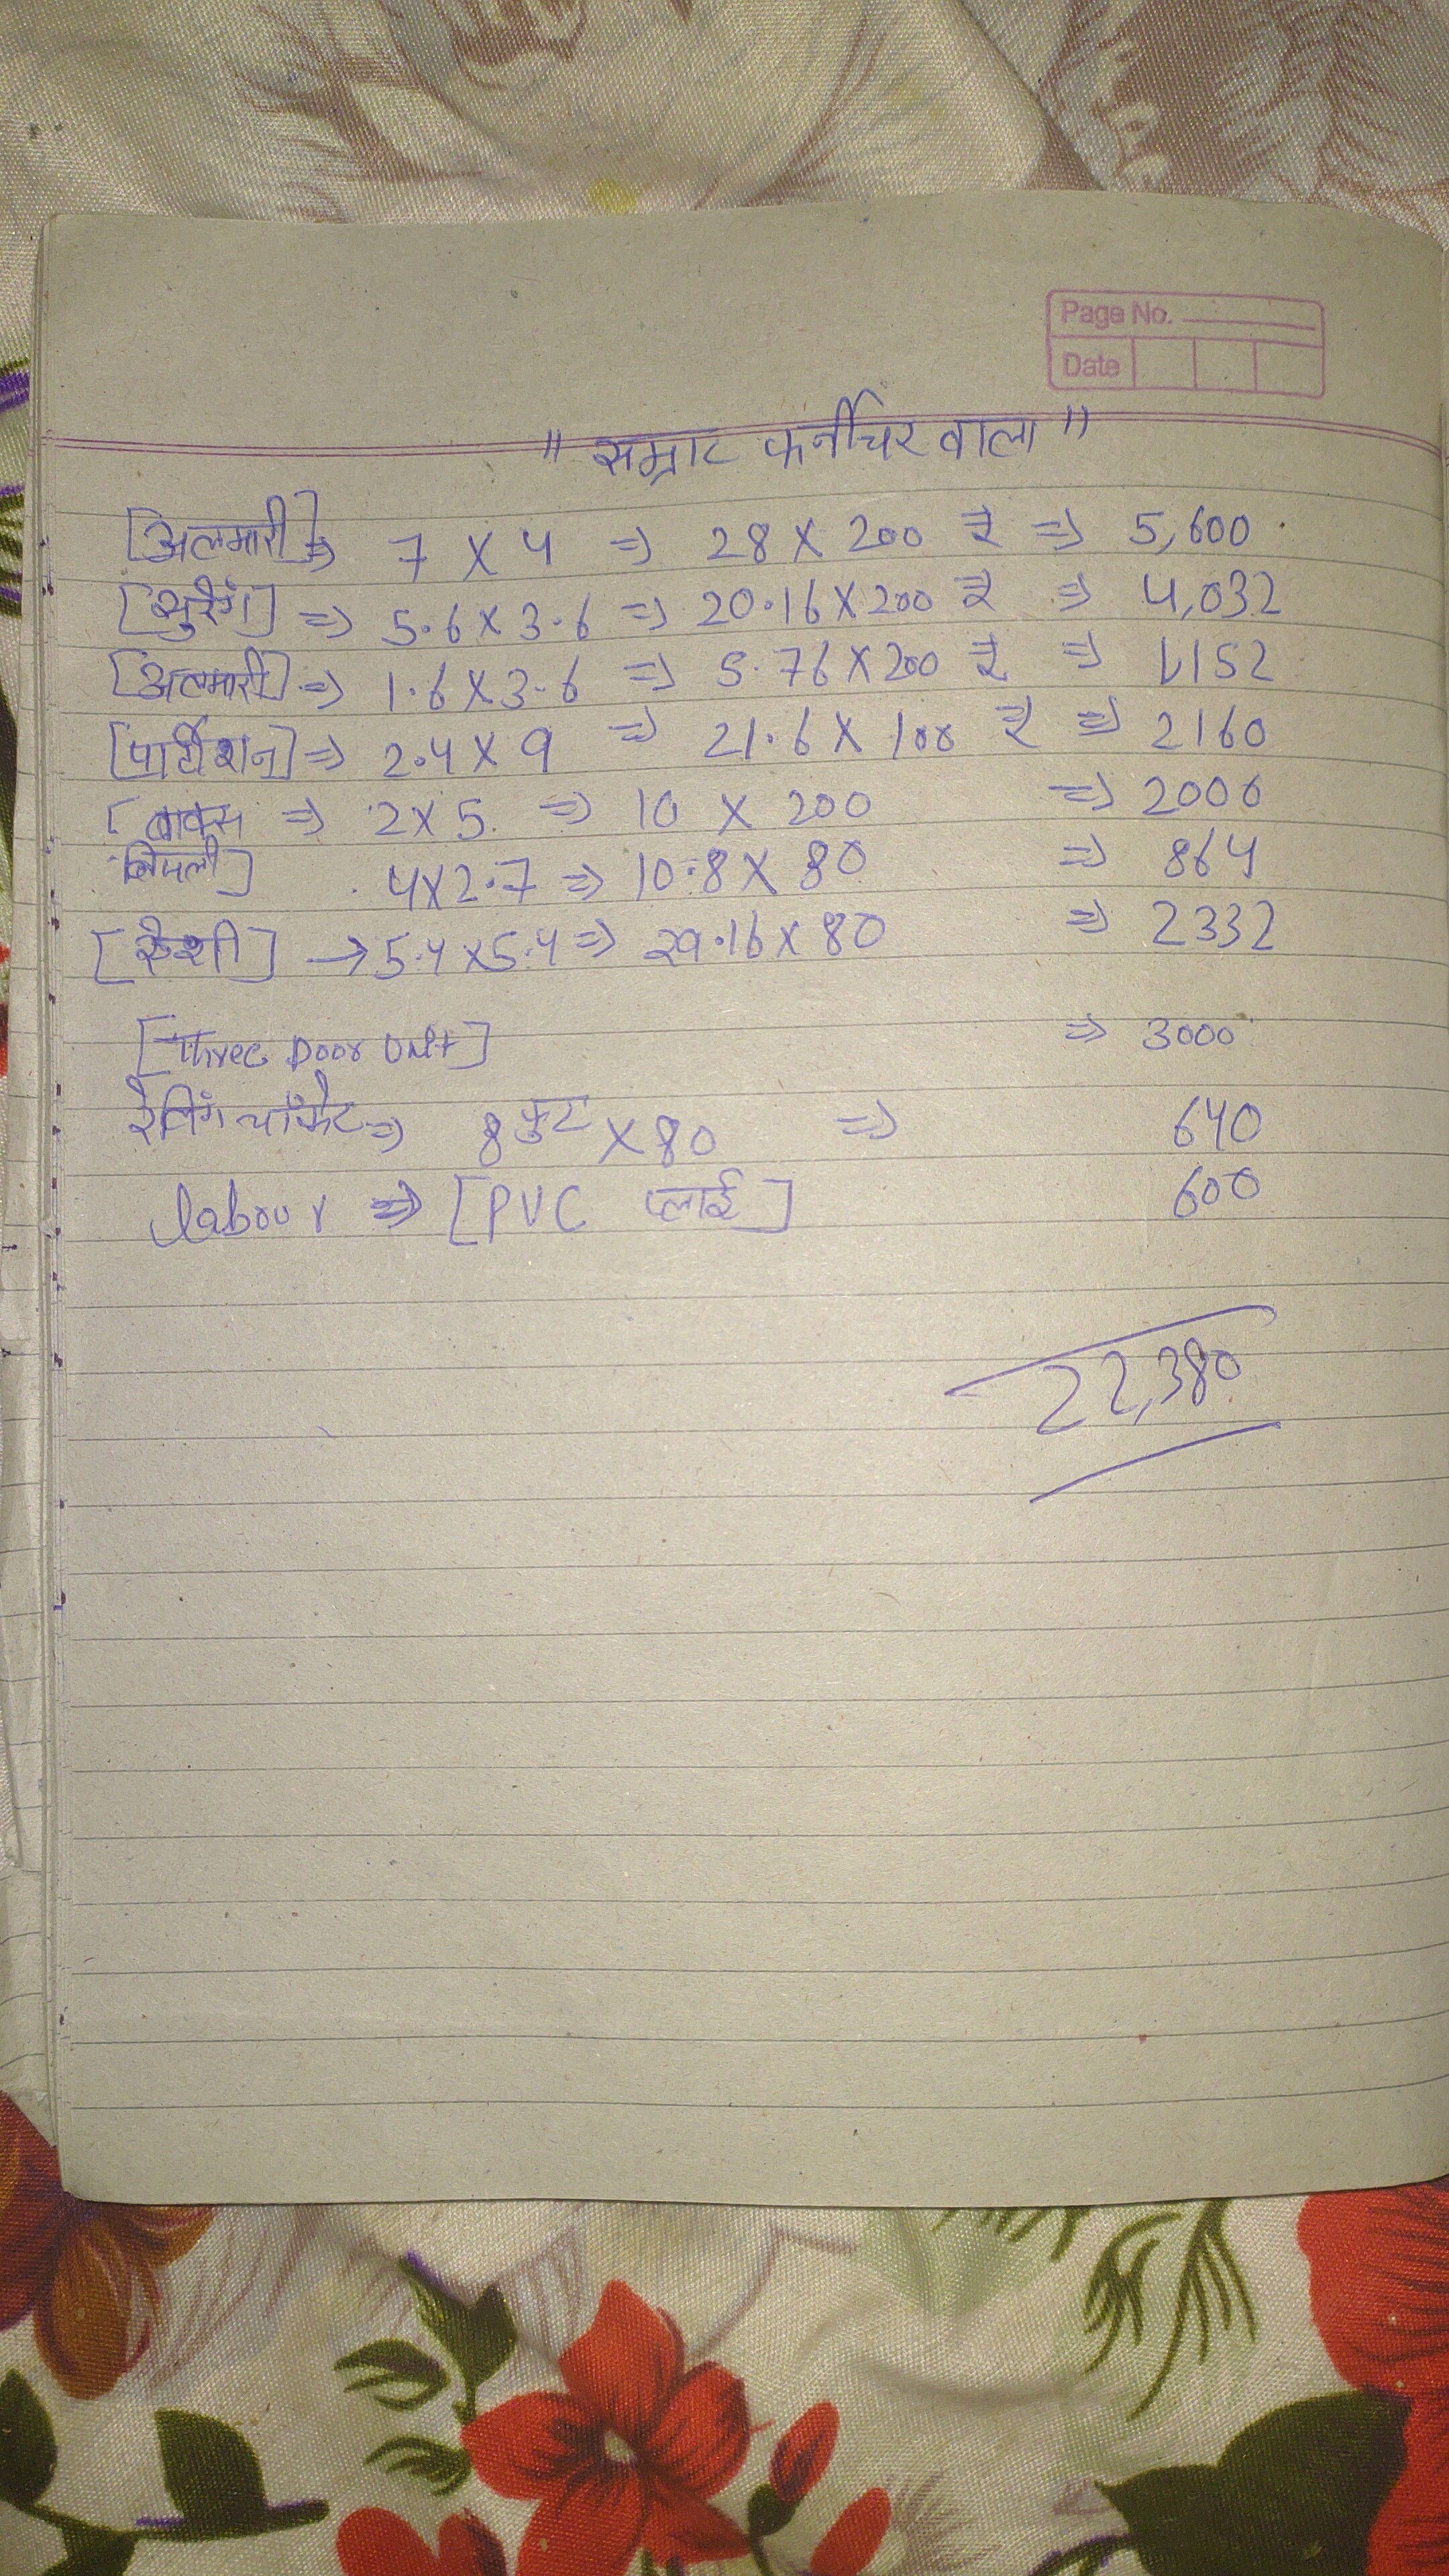 Page No.
Date
" सम्राट फर्नीचर वाला "
[अलमारी] => 7 X 4 => 28 X 200 ₹ => 5,600
=> 5.6 X 3.6 => 20.16 X 200 ₹ => 4,032
[अलमारी] => 1.6 X 3.6 => 5.76 X 200 ₹ => 1152
[पार्टीशन] => 2.4 X 9 => 21.6 X 100 ₹ => 2160
[बाक्स => 2 X 5 => 10 X 200 => 2000
4 X 2.7 => 10.8 X 80 => 864
→ 5.4 X 5.4 => 29.16 X 80 => 2332
[Three Door Unit] => 3000
=> 8 फुट X 80 => 640
labour => [PVC प्लाई] 600
22,380